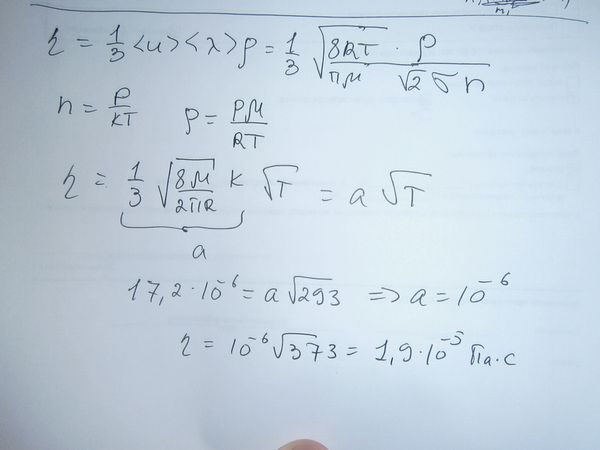 η = 1/3 <u><λ>ρ = 1/3 √(8RT/πM) · ρ/(√2 σ n)
n = P/KT ρ = PM/RT
η = 1/3 √(8M/2πR) K √T = a √T
a
17,2·10⁻⁶ = a√293 => a = 10⁻⁶
η = 10⁻⁶√373 = 1,9·10⁻⁵ Па·с